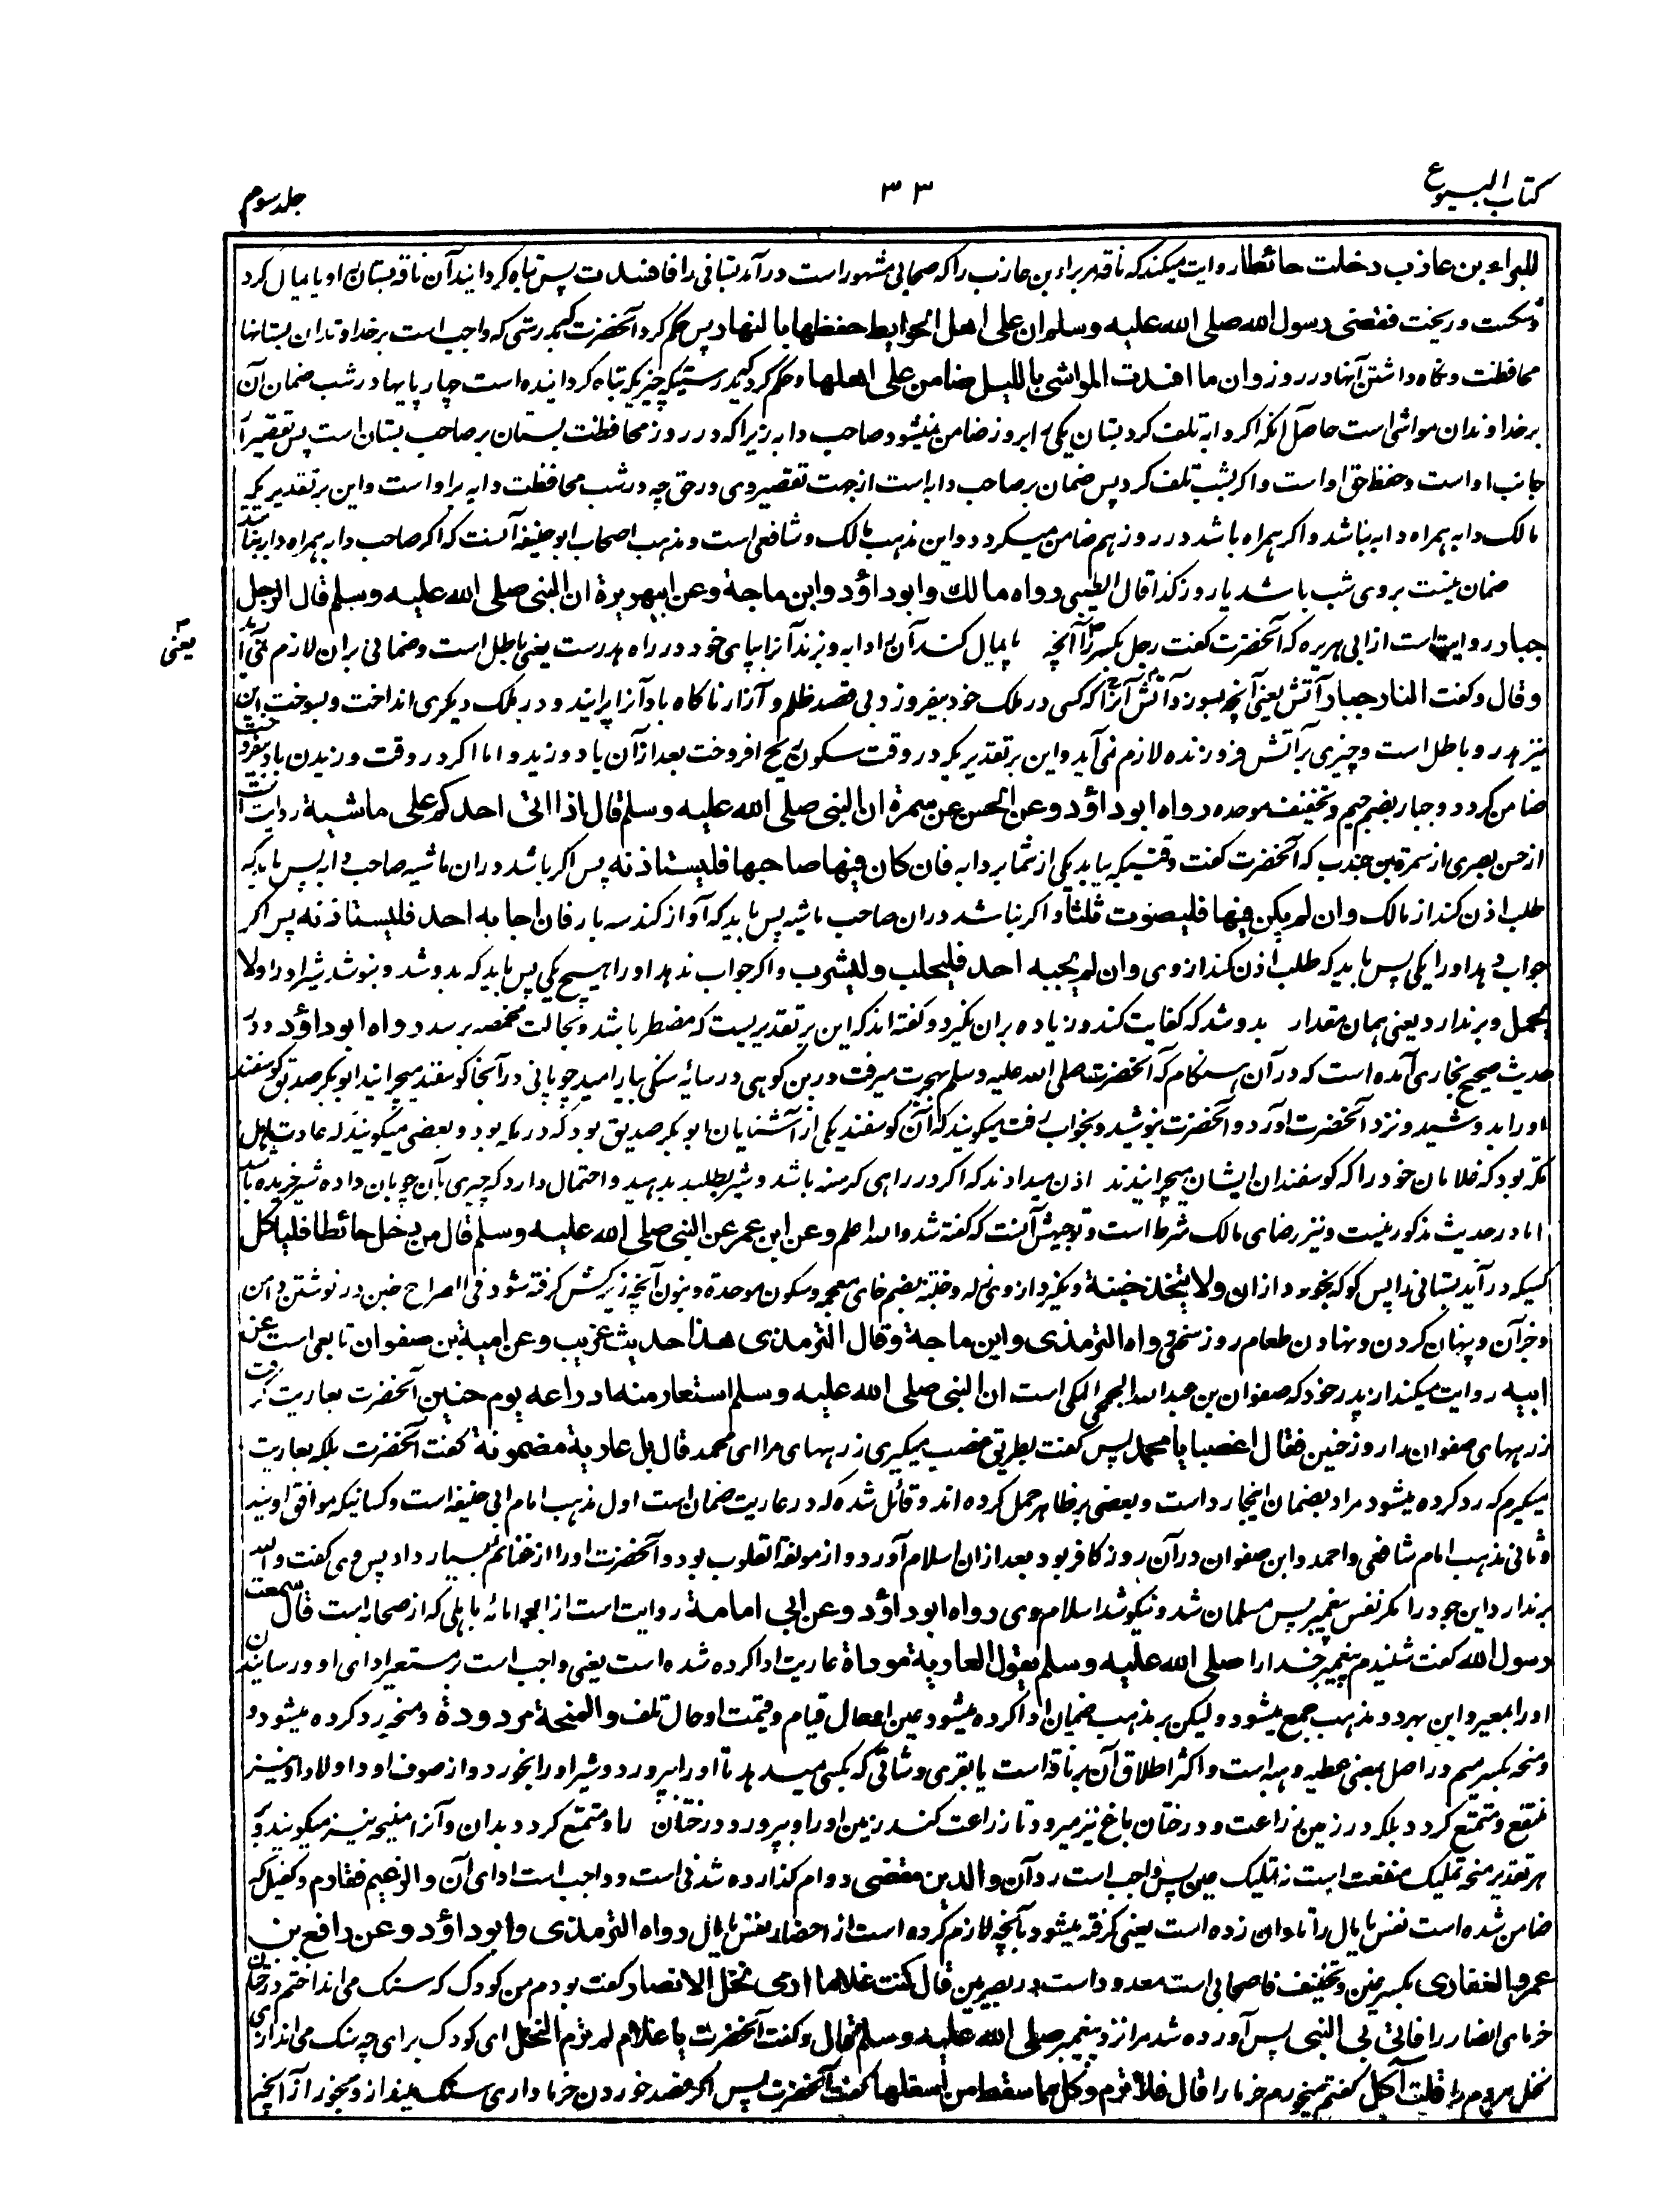 كتاب البيوع
٣٣
جلد سوم
للبراء بن عازب دخلت حائطا روایت میکند که ناقه مر براء بن عازب را که صحابی مشهور است در آمد بستانی را فافسدت پس تباه کردانید آن ناقه بستان او پایمال کرد
و شکست و ریخت فقضى رسول الله صلى الله عليه وسلم ان على اهل الحوايط حفظها بالنهار پس حکم کرد آنحضرت بدرستی که واجب است بر خداوندان بستانها
محافظت و نگاه داشتن آنها در روز وان ما افسدت المواشى بالليل ضامن على اهلها و حکم کرد بدرستیکه چیزیکه تباه کردانیده است چارپایها در شب ضمان آن
بر خداوندان مواشی است حاصل آنکه اکر دابه تلف کرد بستان یکی را بروز ضامن نمیشود صاحب دابه زیرا که در روز محافظت بستان بر صاحب بستان است پس تقصیر از
جانب او است و حفظ حق او است و اکر بشب تلف کرد پس ضمان بر صاحب دابه است از جهت تقصیر وی در حق چه در شب محافظت دابه بر او است و این بر تقدیریکه
مالک دابه همراه دابه نباشد و اکر همراه باشد در روز هم ضامن میکردد و این مذهب مالک و شافعی است و مذهب اصحاب ابو حنیفه آنست که اکر صاحب دابه همراه دابه نباشد
ضمان نیست بروی شب باشد یا روز کذا قال الطیبی رواه مالك وابو داؤد وابن ماجة وعن ابيهريرة ان النبى صلى الله عليه وسلم قال الرجل
جبار روایت است از ابی هریره که آنحضرت کفت رجل بکسر را آنچه پایمال کند آن را دابه و بزند آنرا بپای خود در راه هدر است یعنی باطل است و ضمانی بران لازم نمی آید
یعنی
وقال و کفت النار جبار آتش یعنی آنچه بسوزد آتش آنرا که کسی در ملک خود بیفروزد بی قصد ظلم و آزار ناکاه باد آنرا پرانید و در ملک دیکری انداخت و بسوخت این
نیز هدر و باطل است و چیزی بر آتش فروزنده لازم نمی آید و این بر تقدیریکه در وقت سکون ریح افروخت بعد ازان باد وزید و اما اکر در وقت وزیدن باد بیفروخت
ضامن کردد و جبار بضم جیم و تخفیف موحده رواه ابو داؤد وعن الحسن عن سمرة ان النبى صلى الله عليه وسلم قال اذا اتى احدكم على ماشية روایت است
از حسن بصری از سمرة بن جندب که آنحضرت کفت وقتیکه بیاید یکی از شما بر دابه فان كان فيها صاحبها فليستاذنه پس اکر باشد دران ماشیه صاحب دابه پس باید که
طلب اذن کند از مالک وان لم يكن فيها فليصوت ثلثا و اکر نباشد دران صاحب ماشیه پس باید که آواز کند سه بار فان اجابه احد فليستاذنه پس اکر
جواب دهد او را یکی پس باید که طلب اذن کند از وی وان لم يجبه احد فليحلب وليشرب و اکر جواب ندهد او را هیچ یکی پس باید که بدوشد و بنوشد شیر او را ولا
يحمل و برندارد یعنی همان مقدار بدوشد که کفایت کند و زیاده بران نگیرد و کفته اند که این بر تقدیریست که مضطر باشد و بحالت مخمصه برسد رواه ابو داؤد و در
حدیث صحیح بخاری آمده است که در آن هنکام که آنحضرت صلی الله علیه وسلم بهجرت میرفت در بن کوهی در سایه سنکی بیارامید چوپانی در آنجا کوسفند میچرانید ابو بکر صدیق کوسفند
او را بدوشید و نزد آنحضرت آورد و آنحضرت بنوشید و بخواب رفت میکویند که آن کوسفند یکی از آشنایان ابو بکر صدیق بود که در مکه بود و بعضی میکویند که عادت اهل
مکه بود که غلامان خود را که کوسفندان ایشان میچرانیدند اذن میدادند که اکر در راهی کرسنه باشد و شیر بطلبد بدهید و احتمال دارد که چیزی بآن چوپان داده شیر خریده باشد
اما در حدیث مذکور نیست و نیز رضای مالک شرط است و توجیهش آنست که کفته شد والله اعلم وعن ابن عمر عن النبى صلى الله عليه وسلم قال من دخل حائطا فلياكل
کسیکه در آید بستانی را پس کو که بخورد ازان ولا يتخذ خبنة و نکیرد از وی له و خبنه بضم خای معجمه و سکون موحده و بنون آنچه زیر کش کرفته شود فی الصراح خبن در نوشتن دامن
و جز آن و پنهان کردن و نهادن طعام روز سختی رواه الترمذى وابن ماجة وقال الترمذى هذا حديث غريب وعن امية بن صفوان تابعی است عن
ابيه روایت میکند از پدر خود که صفوان بن عبد الله الجمحی المکی است ان النبى صلى الله عليه وسلم استعار منه ادراعه يوم حنين آنحضرت بعاریت کرفت
زرههای صفوان را روز حنین فقال اغصبا يا محمد پس کفت بطریق غصب میکیری زرههای مرا ای محمد قال بل عارية مضمونة کفت آنحضرت بلکه بعاریت
میکیرم که رد کرده میشود مراد بضمان اینجا رد است و بعضی بر ظاهر حمل کرده اند و قائل شده که در عاریت ضمان است اول مذهب امام ابی حنیفه است و کسانیکه موافق اویند
و ثانی مذهب امام شافعی و احمد و ابن صفوان در آن روز کافر بود بعد ازان اسلام آورد و از مولفة القلوب بود و آنحضرت او را از غنائم بسیار داد پس وی کفت والله
برندارد این جود را مکر نفس پیغمبر پس مسلمان شد و نیکو شد اسلام وی رواه ابو داؤد وعن ابى امامة روایت است از ابو امامه باهلی که از صحابه است قال سمعت
رسول الله کفت شنیدم پیغمبر خدا را صلى الله عليه وسلم يقول العارية موداة عاریت ادا کرده شده است یعنی واجب است بر مستعیر ادای او و رسانیدن
او را بمعیر و این بهر دو مذهب جمع میشود و لیکن بر مذهب ضمان ادا کرده میشود عین او بحال قیام و قیمت او حال تلف والمنحة مردودة و منحه رد کرده میشود و
و منحه بکسر میم در اصل بمعنی عطیه و هبه است و اکثر اطلاق آن بر ناقه است یا بقری و شاتی که بکسی میدهد تا او را بپرورد و شیر او را بخورد و از صوف او و اولاد او نیز
منتفع و متمتع کردد بلکه در زمین زراعت و درختان باغ نیز میرود تا زراعت کند زمین او را و بپرورد درختان را و متمتع کردد بدان و آنرا منیحه نیز میکویند و بر
هر تقدیر منحه تملیک منفعت است نه تملیک عین پس واجب است رد آن والدين مقضى و وام کذارده شدنی است و واجب است ادای آن والزعيم غارم و کفیل که
ضامن شده است نفس یا مال را تاوان زده است یعنی کرفته میشود بآنچه لازم کرده است از احضار نفس یا مال رواه الترمذى وابو داؤد وعن رافع بن
عمرو الغفارى بکسر غین و تخفیف فا صحابی است معدود است در بصریین قال كنت غلاما ارمى نخل الانصار کفت بودم من کودک که سنک می انداختم درختان
خرمای انصار را فاتى بى النبى پس آورده شد مرا نزد پیغمبر صلى الله عليه وسلم فقال و کفت آنحضرت يا غلام لم ترم النخل ای کودک برای چه سنک می اندازی
نخل مردم را قلت آكل کفتم میخورم خرما را قال فلا ترم وكل مما سقط من اسفلها کفت آنحضرت پس اکر قصد خوردن خرما داری سنک مینداز و بخور از آنچه